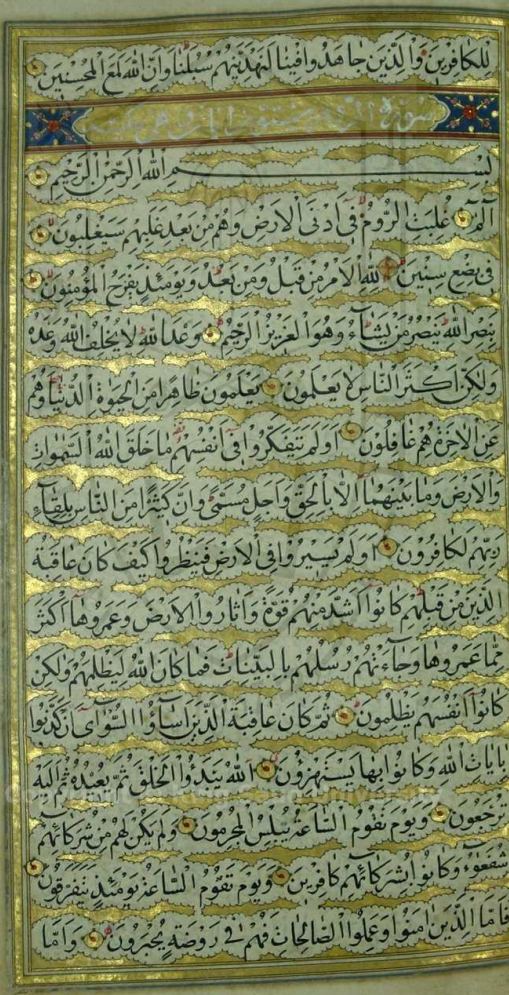 للكافرين والذين جاهدوا فينا لنهدينهم سبلنا وان الله لمع المحسنين
سورة الروم ستون اية وهي مكية
بسم الله الرحمن الرحيم
الم غلبت الروم في ادنى الارض وهم من بعد غلبهم سيغلبون
في بضع سنين لله الامر من قبل ومن بعد ويومئذ يفرح المؤمنون
بنصر الله ينصر من يشاء وهو العزيز الرحيم وعد الله لا يخلف الله وعده
ولكن اكثر الناس لا يعلمون يعلمون ظاهرا من الحيوة الدنيا وهم
عن الاخرة هم غافلون اولم يتفكروا في انفسهم ما خلق الله السموات
والارض وما بينهما الا بالحق واجل مسمى وان كثيرا من الناس بلقاء
ربهم لكافرون اولم يسيروا في الارض فينظروا كيف كان عاقبة
الذين من قبلهم كانوا اشد منهم قوة واثاروا الارض وعمروها اكثر
مما عمروها وجاءتهم رسلهم بالبينات فما كان الله ليظلمهم ولكن
كانوا انفسهم يظلمون ثم كان عاقبة الذين اساؤا السواى ان كذبوا
بايات الله وكانوا بها يستهزؤن الله يبدؤا الخلق ثم يعيده ثم اليه
ترجعون ويوم تقوم الساعة يبلس المجرمون ولم يكن لهم من شركائهم
شفعؤا وكانوا بشركائهم كافرين ويوم تقوم الساعة يومئذ يتفرقون
فاما الذين امنوا وعملوا الصالحات فهم في روضة يحبرون واما